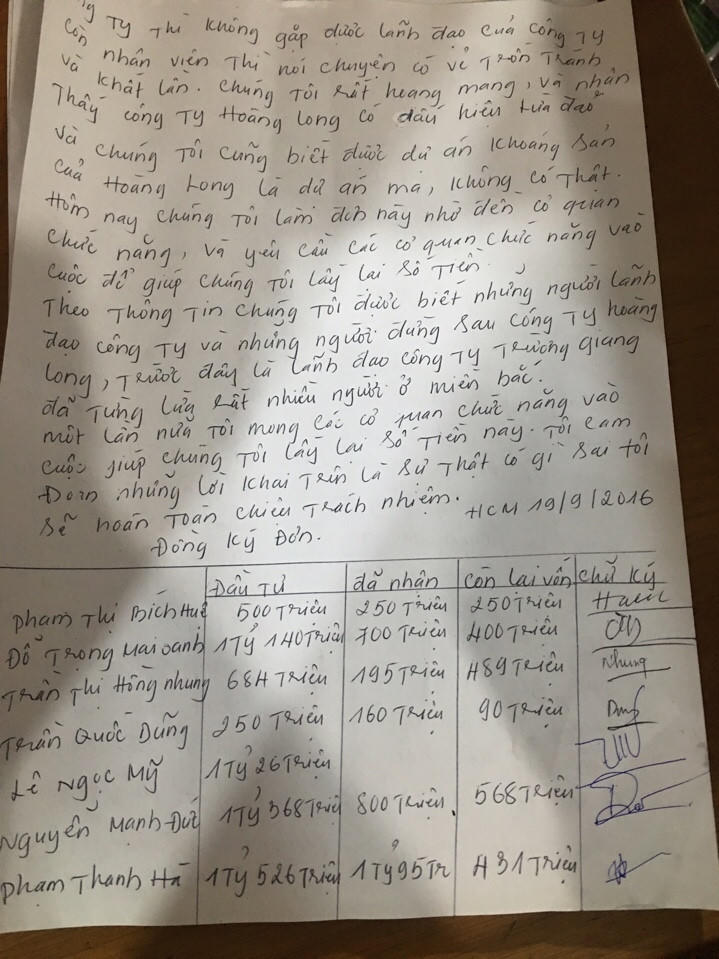 ng Ty Thì không gặp được lãnh đạo của công Ty
Còn nhân viên Thì nói chuyện có vẻ Trốn Tránh
và khất lần. chúng Tôi rất hoang mang, và nhân
Thấy công Ty Hoàng Long có dấu hiệu lừa đảo
và chúng Tôi cũng biết được dự án khoáng sản
của Hoàng Long là dự án ma, không có Thật.
Hôm nay chúng Tôi làm đơn này nhờ đến cơ quan
chức năng, và yêu cầu các cơ quan chức năng vào
cuộc để giúp chúng Tôi lấy lại số Tiền.
Theo Thông Tin chúng Tôi được biết những người lãnh
đạo công Ty và những người đứng sau công Ty hoàng
long, Trước đây là lãnh đạo công Ty Trường giang
đã Từng lừa rất nhiều người ở miền bắc.
một lần nữa Tôi mong các cơ quan chức năng vào
cuộc giúp chúng Tôi lấy lại số Tiền này. Tôi cam
Đoan những lời khai Trên là sự Thật có gì sai tôi
sẽ hoàn Toàn chiệu Trách nhiệm.
HCM 19/9/2016
Đồng Ký Đơn.
Đầu Tư đã nhận còn lại vốn chữ ký
phạm Thị Bích Huệ 500 Triệu 250 Triệu 250 Triệu
Đỗ Trọng Mai oanh 1Tỷ 140 Triệu 700 Triệu 400 Triệu
Trần Thị Hồng nhung 684 Triệu 195 Triệu 489 Triệu Nhung
Trần Quốc Dũng 250 Triệu 160 Triệu 90 Triệu
Lê Ngọc Mỹ 1Tỷ 26 Triệu
Nguyễn Mạnh Đức 1Tỷ 368 Triệu 800 Triệu. 568 Triệu
phạm Thanh Hà 1Tỷ 526 Triệu 1Tỷ 95 Tr 431 Triệu